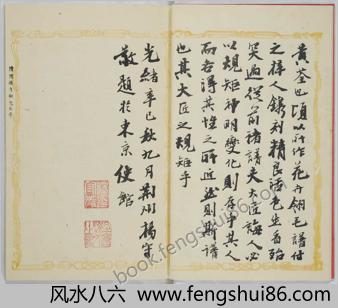 黄荃也頃以所作花卉翎毛譜付
之梓人鐫刻精良活色生香殆
突過從前諸譜夫大匠誨人必
以規矩神明變化則存乎其人
而各得其性之所近然則斯譜
也其大匠之規矩乎
光緒辛巳秋九月荊州楊守
敬題於東京使館
book.fengshui86.com
风水八六 - www.fengshui86.com